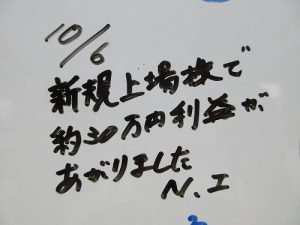 10/6
新規上場株で
約30万円利益が
あがりました
N.I